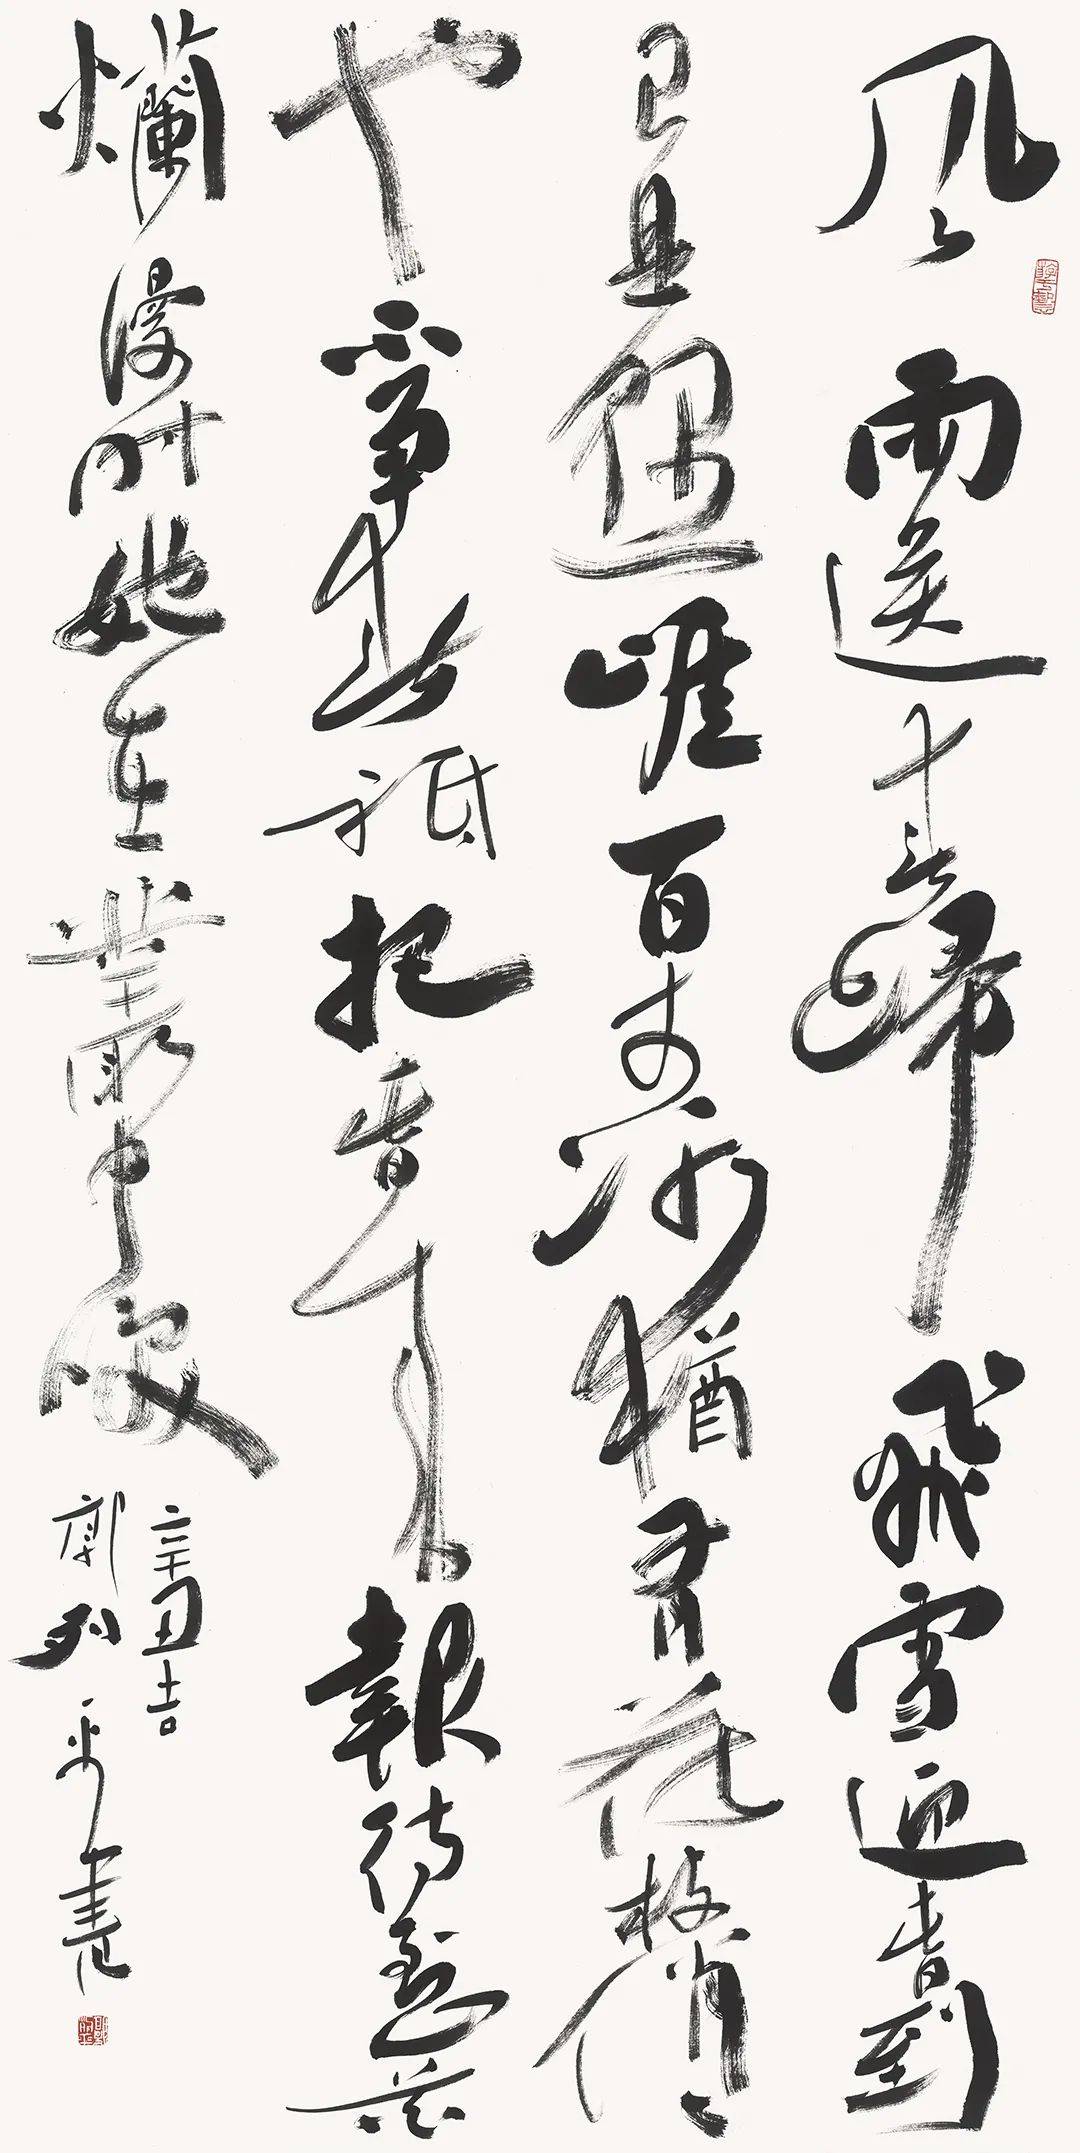 风雨送春歸飛雪迎春到
已是懸崖百丈冰猶有花枝俏〻
也不争春祇把春来報待到山花
爛漫时她在叢中笑
辛丑吉
郭列平書